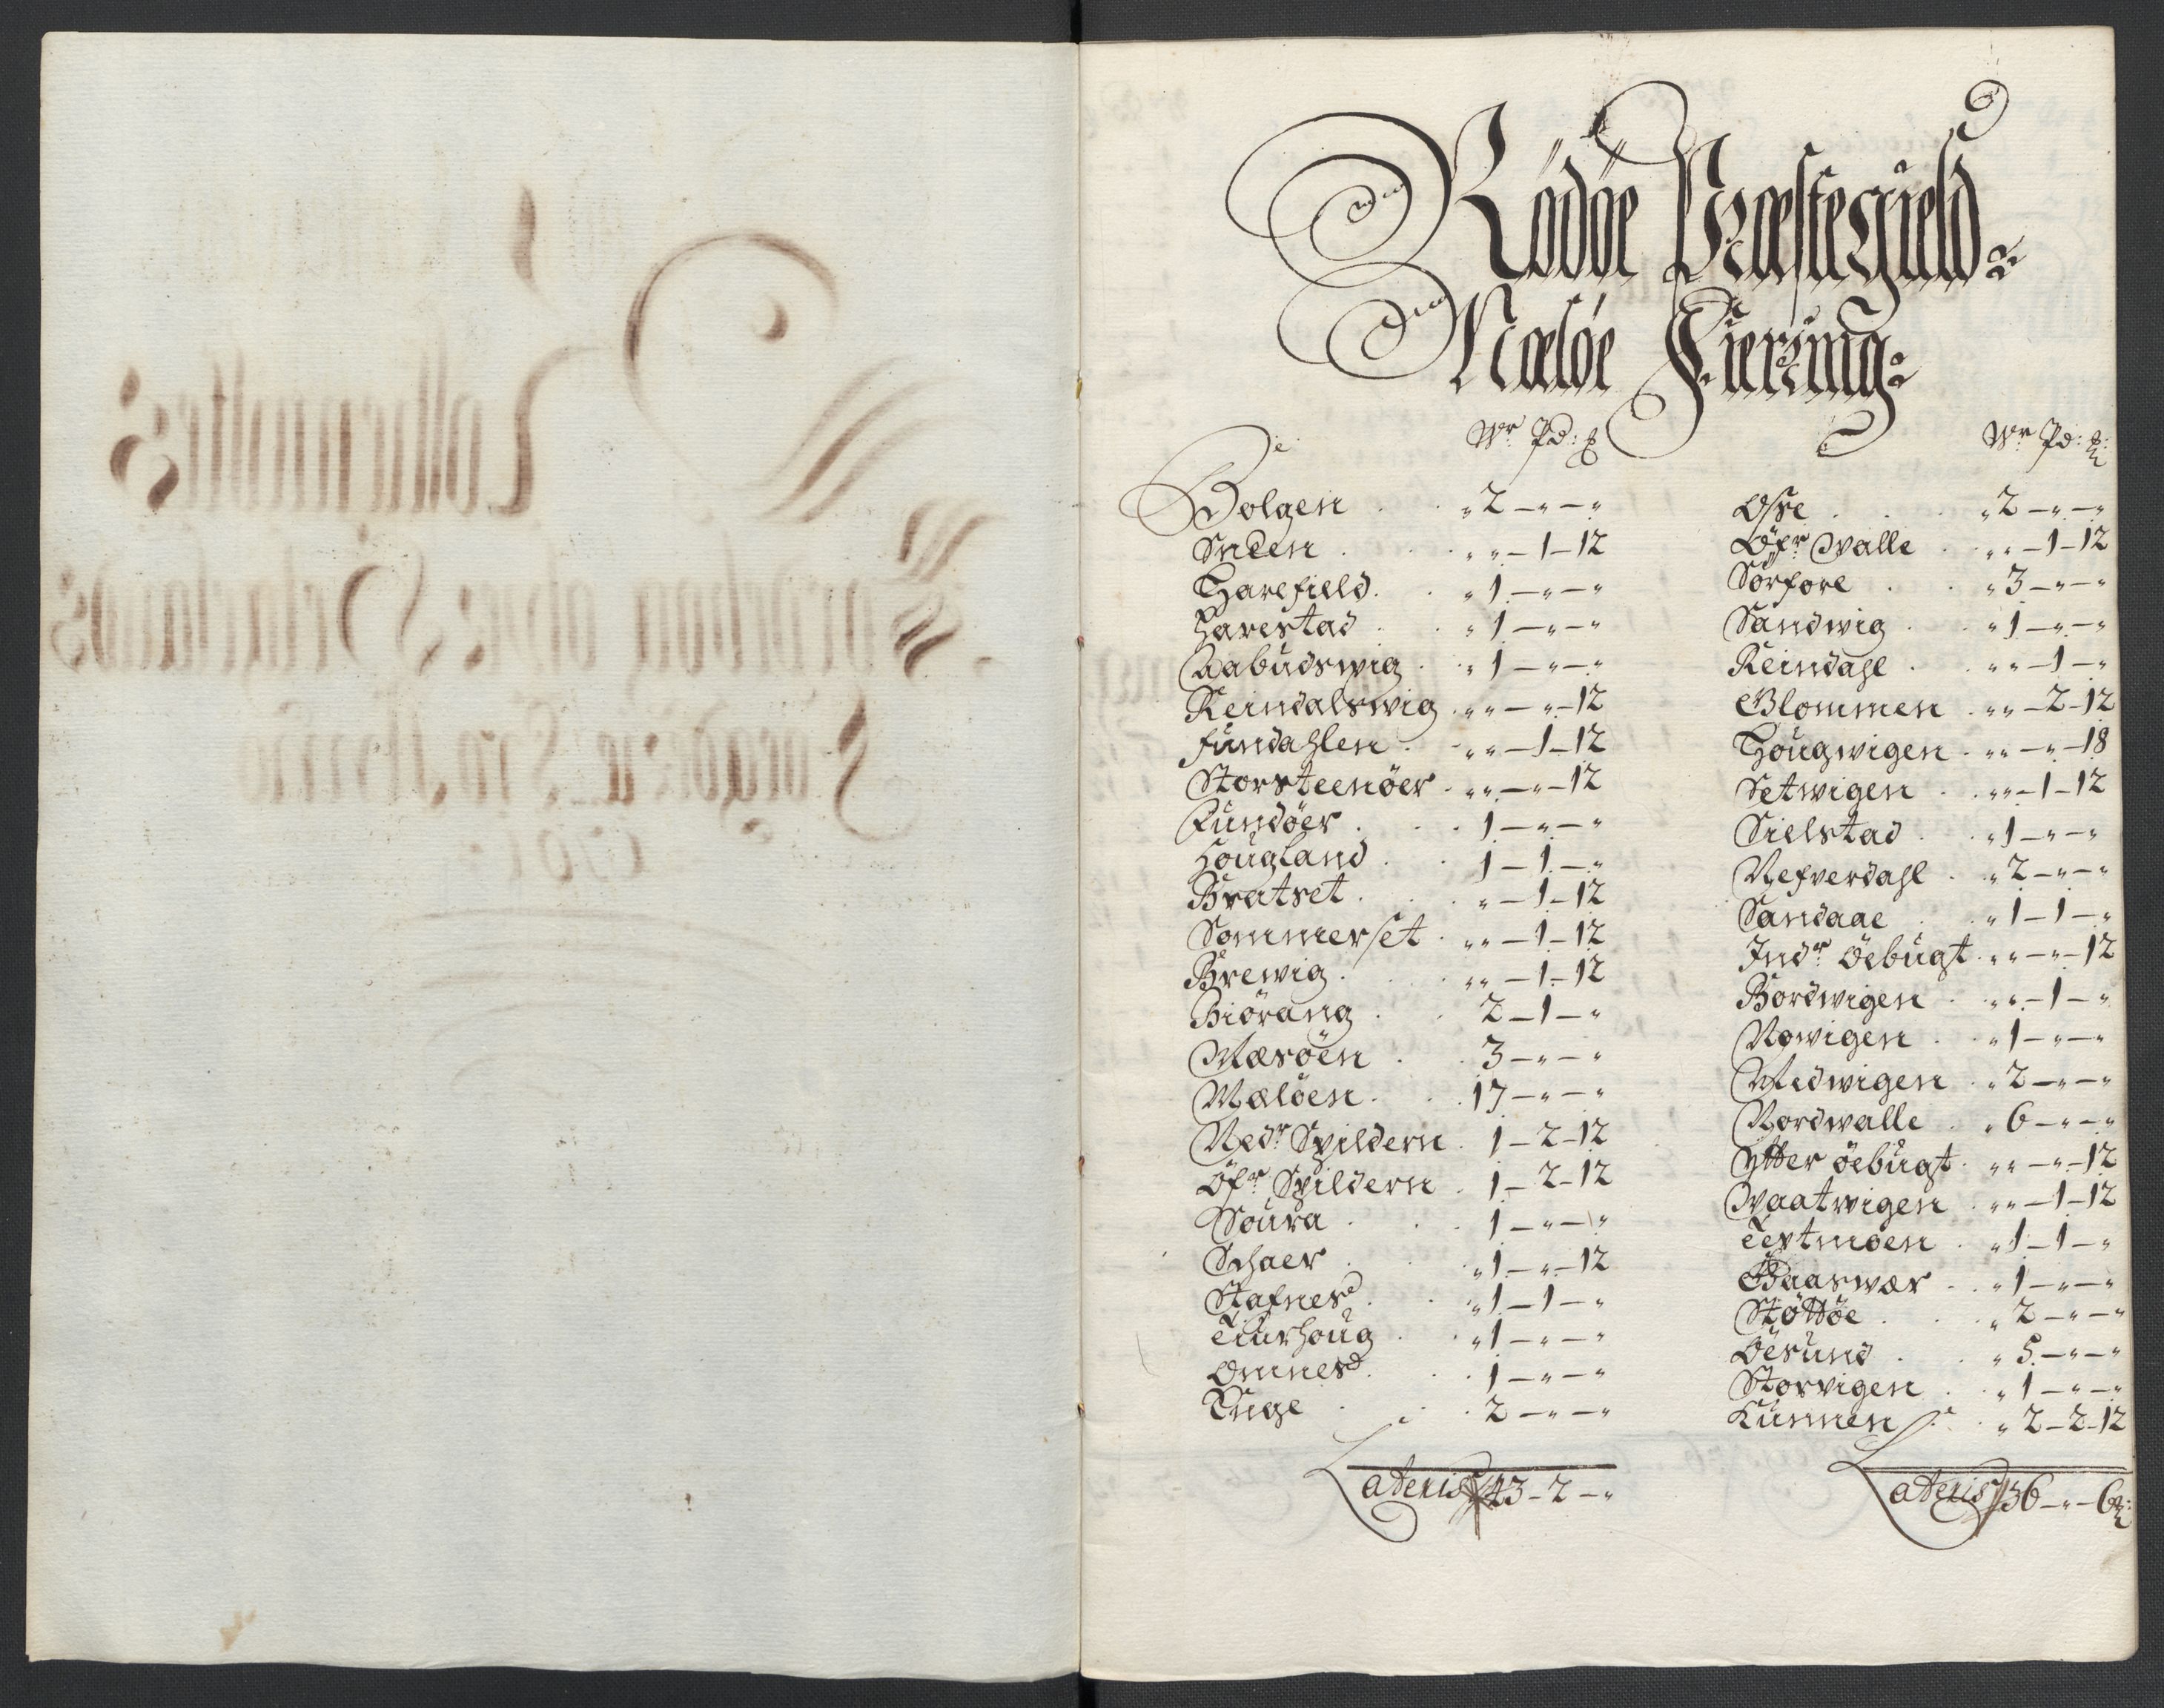 Rödöe Præstegield
Meløe Fierring
Wr Pd: 
Bolgen „ 2 – „ – „
Snden „ „ – 1 – 12
Harefield „ 1 – „ – „
Harestad „ 1 – „ – „
Aabudswig „ 1 – „ – „
Reindalswig „ „ – „ – 12
fundahlen „ „ – 1 – 12
Storsteenöer „ „ – „ – 12
Fundöer 1 – „ – „
Hougland 1 – 1 – „
Bratset „ – 1 – 12
Sommerset „ „ – 1 – 12
Brewig „ „ – 1 – 12
Biörang 2 – 1 – „
Mesöen 3 – „ – „
Meløen 17 – „ – „
Nedr Spildern 1 – 2 – 12
Öfr Spildern 1 – 2 – 12
Soura 1 – „ – „
Schaer „ 1 – „ – 12
Stafnes „ 1 – 1 – „
Tiurhoug „ 1 – „ – „
Omnes 1 – „ – „
Enge 2 – „ – „
Lateris 43 – 2 – „
Wr Pd:
Osse „ 2 – „ – „
Öfr Walle „ „ – 1 – 12
Sörfore „ 3 – „ – „
Sandwig „ 1 – „ – „
Reindahl „ „ – 1 – „
Blommen „ „ – 2 – 12
Hougwigen „ „ – „ – 18
Setwigen „ „ – 1 – 12
Sielstad „ 1 – „ – „
Nefverdahl „ 2 – „ – „
Sandaae „ 1 – 1 – „
Indr Öebugt „ „ – „ – 12
Bordwigen „ „ – 1 – „
Nowigen „ 1 – „ – „
Medwigen „ 2 – „ – „
Nordwalle „ 6 – „ – „
Ytter öebugt „ „ – „ – 12
Waatwigen „ „ – 1 – 12
Textmoen „ 1 – 1 – „
Baaswær „ 1 – „ – „
Støttøe „ 2 – „ – „
Öesund „ 5 – „ – „
Storvigen „ 1 – „ – „
Kunnen „ 2 – 2 – 12
Lateris 36 – „ – 6